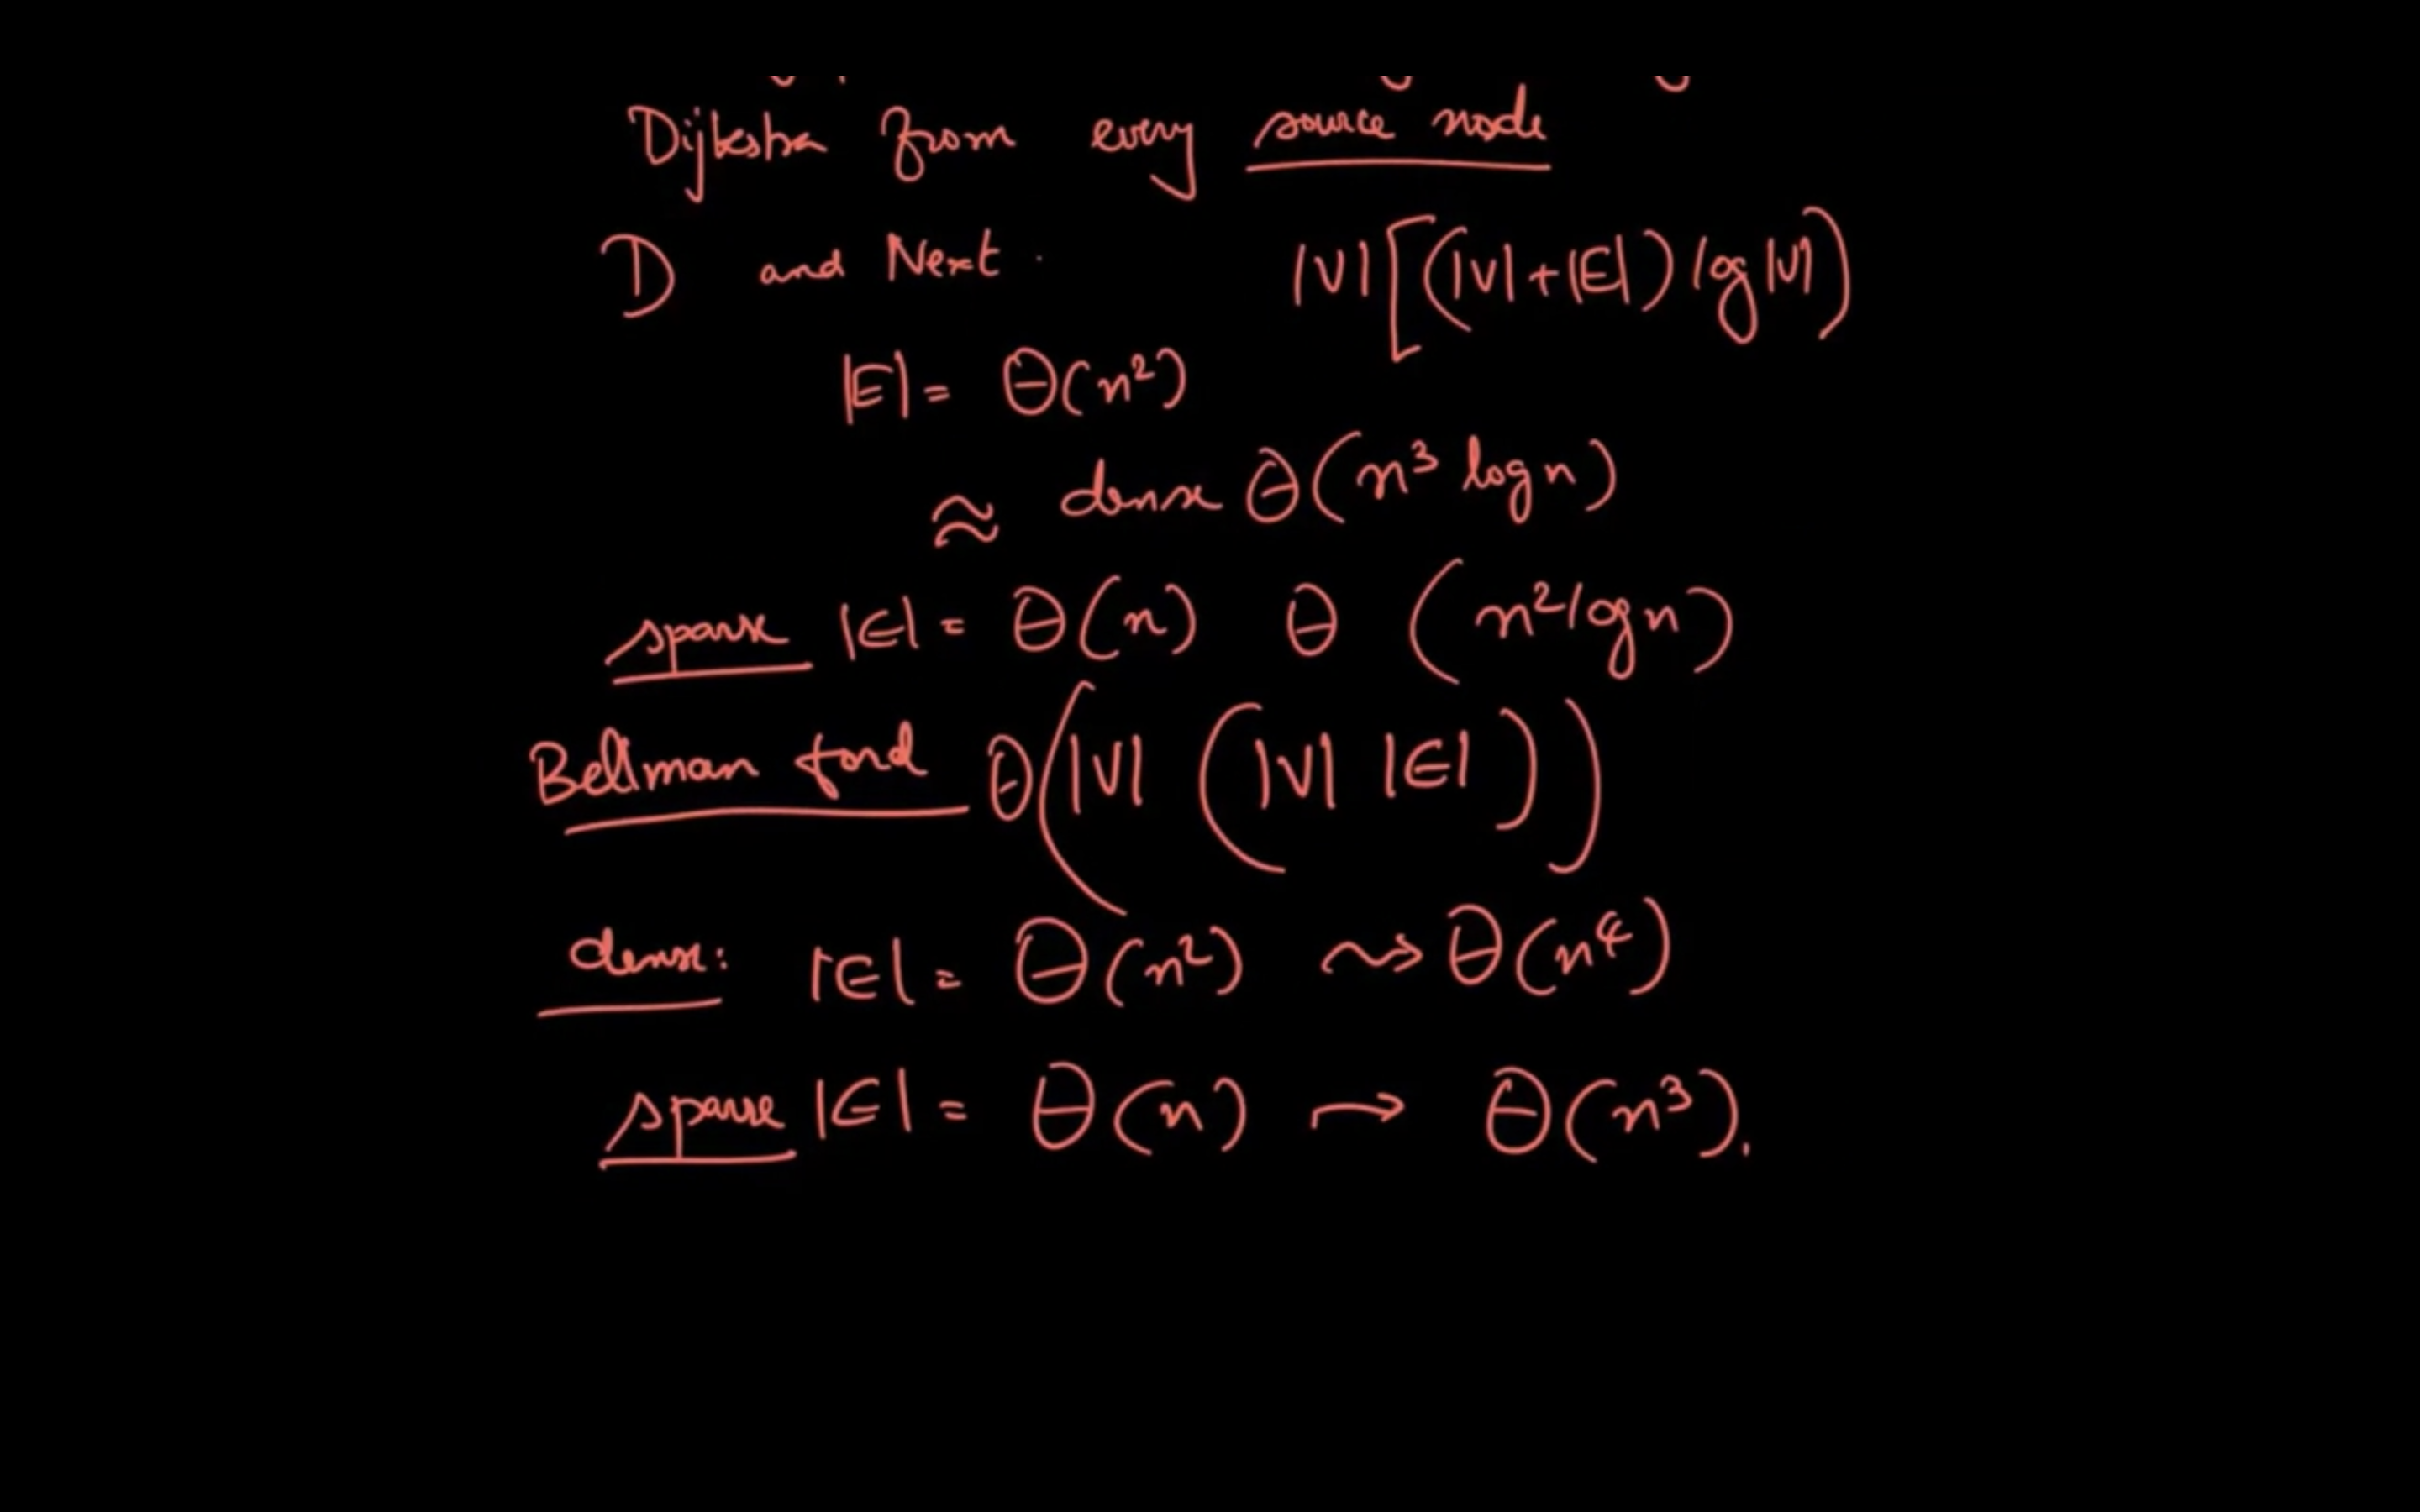 Dijkstra from every source node
D and Next. |V|[(|V|+|E|) log|V|)
|E| = Θ(n²)
≈ dense Θ(n³ log n)
sparse |E| = Θ(n) Θ(n² log n)
Bellman ford Θ(|V| (|V| |E|))
dense: |E| = Θ(n²) ⇝ Θ(n⁴)
sparse |E| = Θ(n) → Θ(n³).